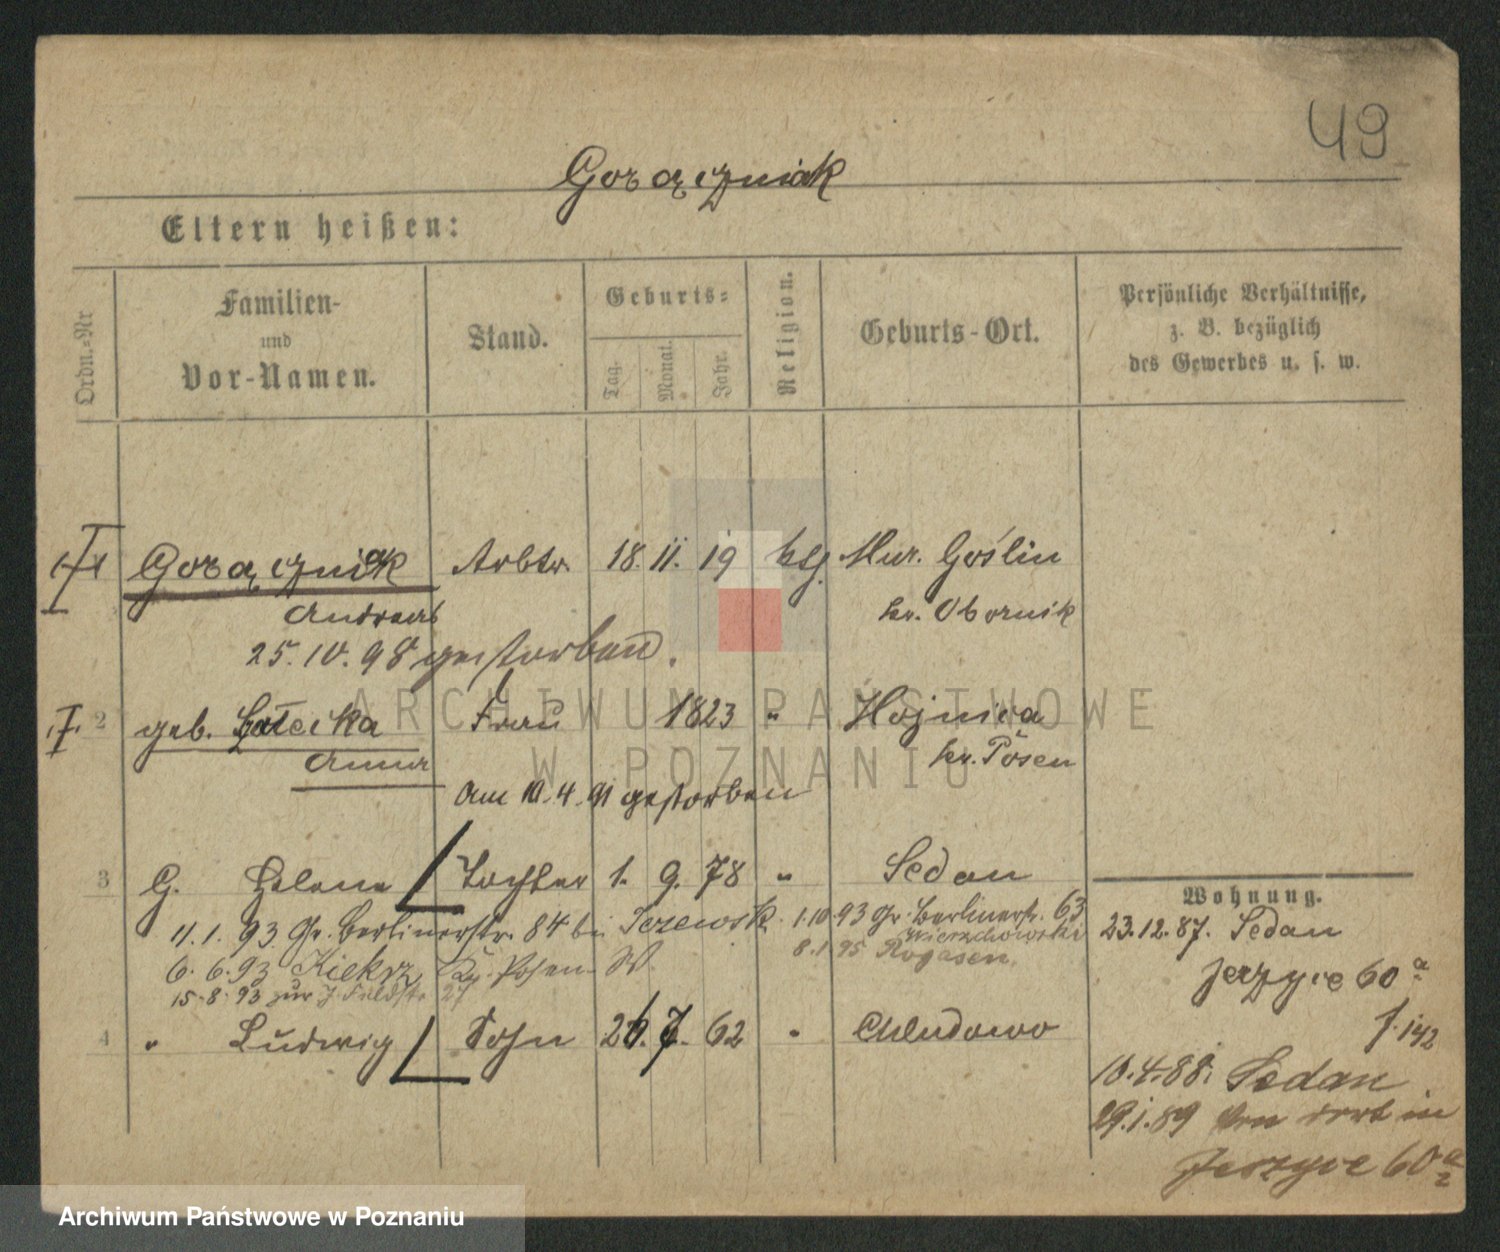 49
Gorączniak
Eltern heißen:
Ordn.-Nr
Familien-
und
Vor-Namen.
Stand.
Geburts-
Tag.
Monat.
Jahr.
Religion.
Geburts-Ort.
Persönliche Verhältnisse,
z. B. bezüglich
des Gewerbes u. s. w.
Gorączniak Arbtr. 18. 11. 19 ktg. Mur. Goślin
Andreas kr. Obornik
25. 10. 98 gestorben.
2 geb. Frau 1823 " Hojnica
Anna kr. Posen
am 10. 4. 91 gestorben
3 G. Helene Tochter 1. 9. 78 " Sedan
11. 1. 93 Gr. Berlinerstr. 84 bei 1. 10. 93 Gr. Berlinerstr. 63
Wierzchowski
6. 6. 93 Kiekrz Posen W 8. 1. 95 Rogasen.
15. 8. 93 zur 27
4 " Ludwig Sohn 26. 7. 62 " Chludowo
Wohnung.
23. 12. 87. Sedan
Jerzyce 60 a
f. 142
10. 4. 88. Sedan
29. 1. 89 von dort in
Jerzyce 60 a
2
ARCHIWUM PAŃSTWOWE
W POZNANIU
Archiwum Państwowe w Poznaniu